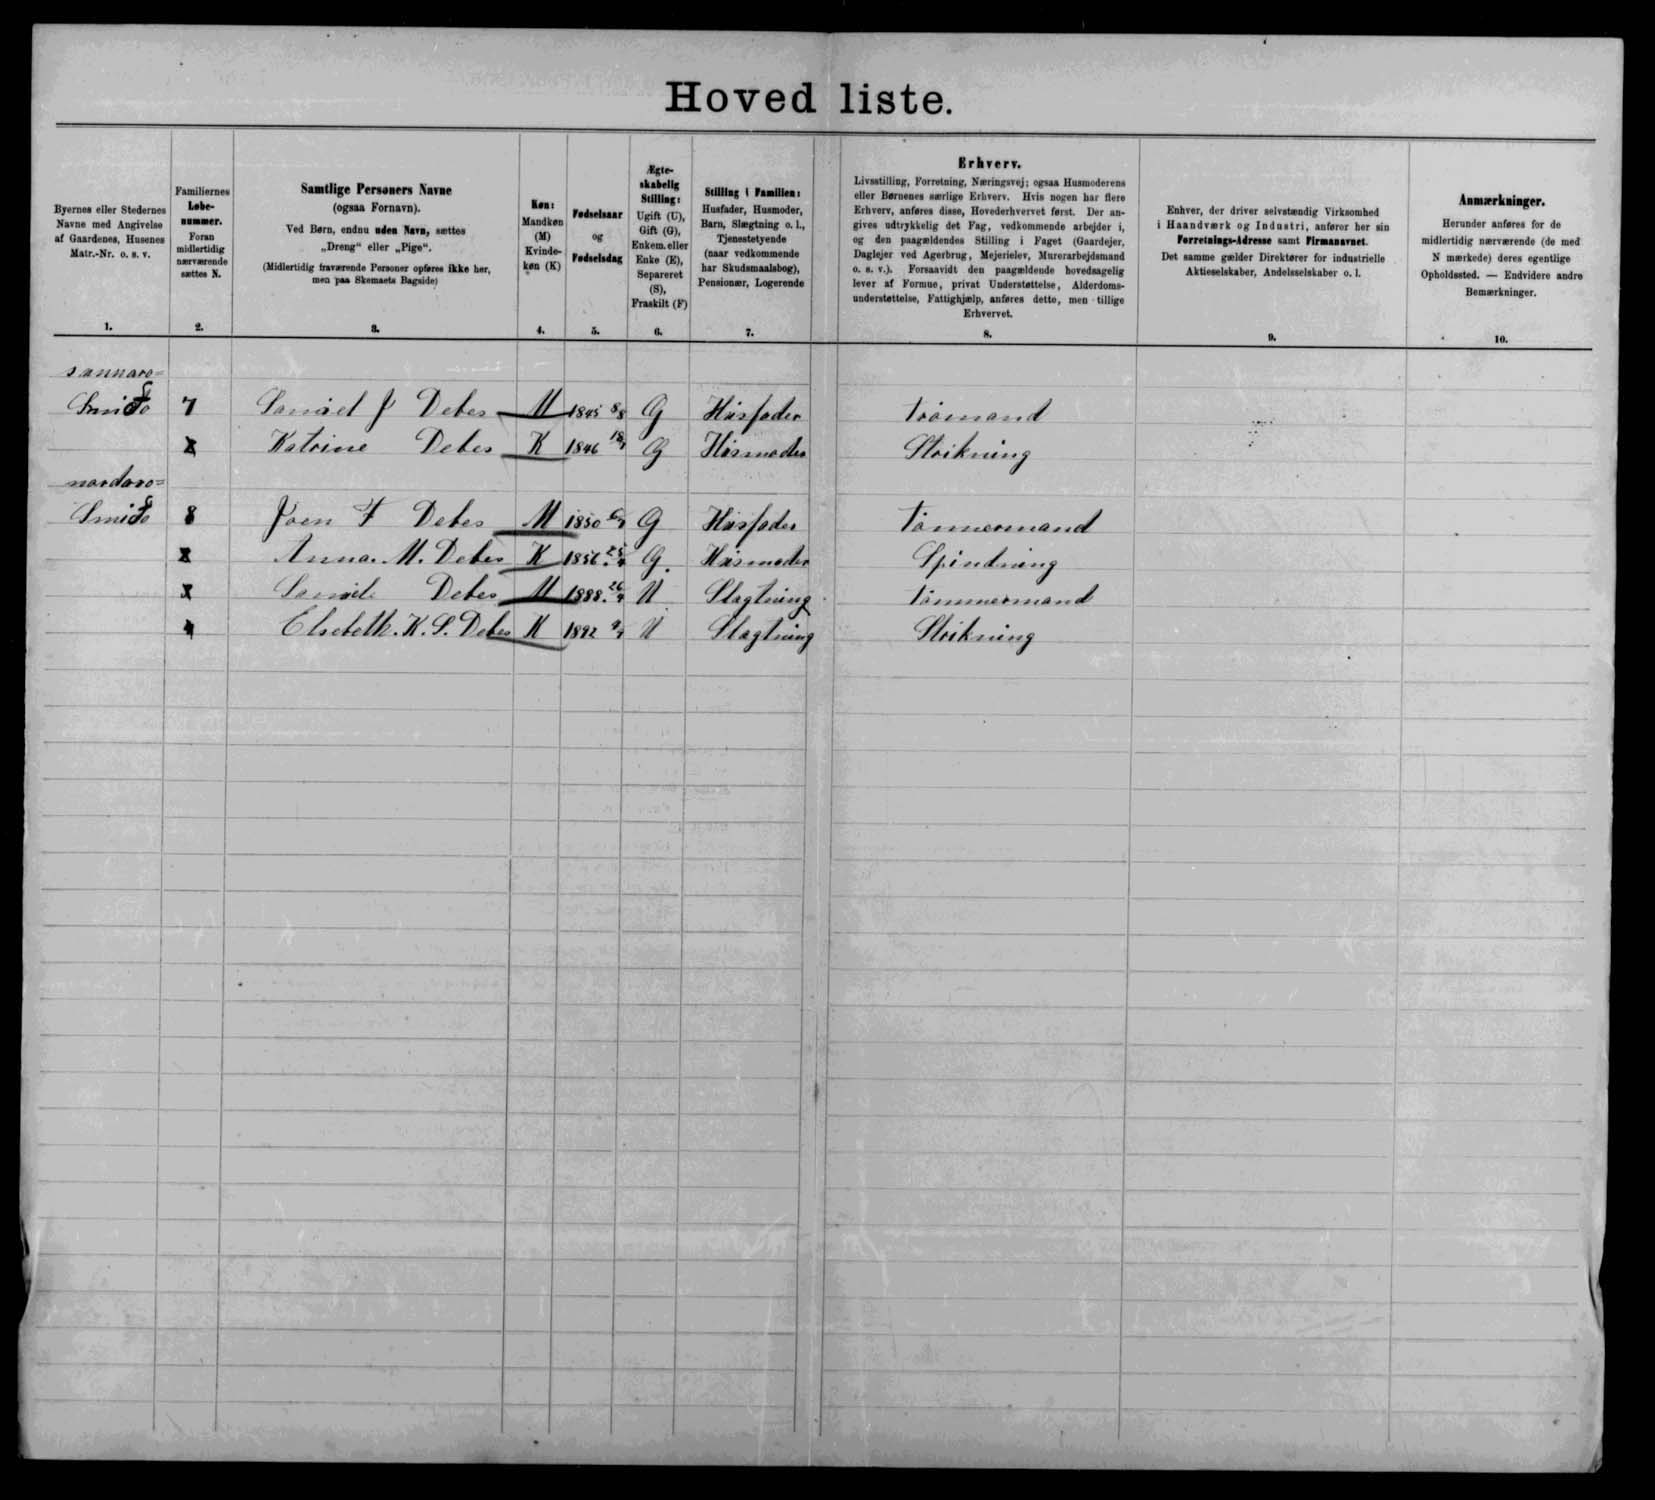 Hoved liste.
Byernes eller Stedernes
Navne med Angivelse
af Gaardenes, Husenes
Matr.-Nr. o. s. v.
1.
Familiernes
Løbe-
nummer.
Foran
midlertidig
nærværende
sættes N.
2.
Samtlige Personers Navne
(ogsaa Fornavn).
Ved Børn, endnu uden Navn, sættes
„Dreng“ eller „Pige“.
(Midlertidig fraværende Personer opføres ikke her,
men paa Skemaets Bagside)
3.
Køn:
Mandkøn
(M)
Kvinde-
køn (K)
4.
Fødselsaar
og
Fødselsdag
5.
Ægte-
skabelig
Stilling:
Ugift (U),
Gift (G),
Enkem. eller
Enke (E),
Separeret
(S),
Fraskilt (F)
6.
Stilling i Familien:
Husfader, Husmoder,
Barn, Slægtning o. l.,
Tjenestetyende
(naar vedkommende
har Skudsmaalsbog),
Pensionær, Logerende
7.
Erhverv.
Livsstilling, Forretning, Næringsvej; ogsaa Husmoderens
eller Børnenes særlige Erhverv. Hvis nogen har flere
Erhverv, anføres disse, Hovederhvervet først. Der an-
gives udtrykkelig det Fag, vedkommende arbejder i,
og den paagældendes Stilling i Faget (Gaardejer,
Daglejer ved Agerbrug, Mejerielev, Murerarbejdsmand
o. s. v.). Forsaavidt den paagældende hovedsagelig
lever af Formue, privat Understøttelse, Alderdoms-
understøttelse, Fattighjælp, anføres dette, men tillige
Erhvervet.
8.
Enhver, der driver selvstændig Virksomhed
i Haandværk og Industri, anfører her sin
Forretnings-Adresse samt Firmanavnet.
Det samme gælder Direktører for industrielle
Aktieselskaber, Andelsselskaber o. l.
9.
Anmærkninger.
Herunder anføres for de
midlertidig nærværende (de med
N mærkede) deres egentlige
Opholdssted. — Endvidere andre
Bemærkninger.
10.
sunnaro=
7 Samiel J Debes M 1845 8/8 G Húsfader
Katrine Debes K 1846 G Húsmoder Strikning
nordaro=
8 Joen F Debes M 1850 G Húsfader Tømmermand
Anna. M. Debes K 1856 G. Húsmoder Spindning
Debes M 1888. U Slagtning Tømmermand
4 Elsebeth. K. S. Debes K 1892 U Slagtning Strikning